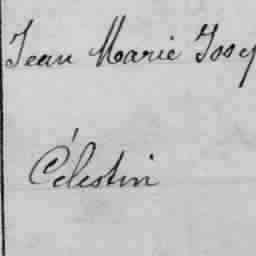 Jean Marie Josep
Célestin